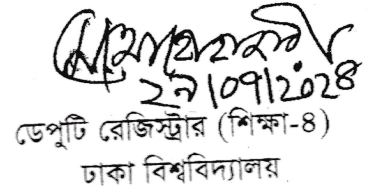 ২৯/০৭/২০২৪
ডেপুটি রেজিস্ট্রার (শিক্ষা-৪)
ঢাকা বিশ্ববিদ্যালয়